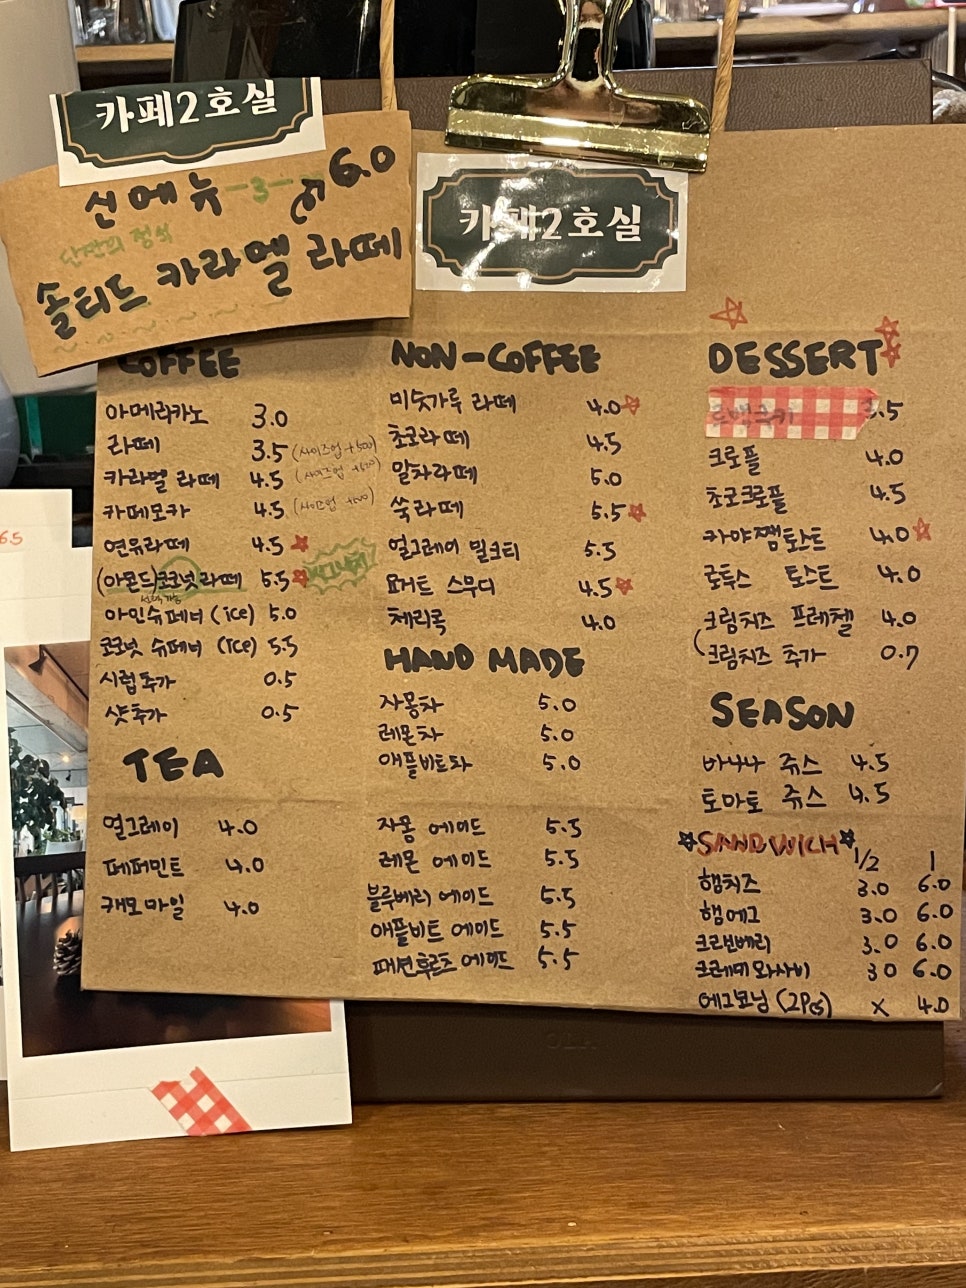 카페2호실
신메뉴 -3- 6.0
솔티드 카라멜 라떼
카페2호실
COFFEE
아메리카노 3.0
라떼 3.5 (사이즈업 +500)
카라멜 라떼 4.5
카페모카 4.5
연유라떼 4.5
(아몬드)코코넛라떼 5.5
선택가능
아인슈페너 (ice) 5.0
코코넛 슈페너 (ice) 5.5
시럽추가 0.5
샷추가 0.5
TEA
얼그레이 4.0
페퍼민트 4.0
캐모마일 4.0
NON-COFFEE
미숫가루 라떼 4.0
초코라떼 4.5
말차라떼 5.0
쑥라떼 5.5
얼그레이 밀크티 5.5
요거트 스무디 4.5
체리콕 4.0
HAND MADE
자몽차 5.0
레몬차 5.0
애플비트차 5.0
자몽 에이드 5.5
레몬 에이드 5.5
블루베리 에이드 5.5
애플비트 에이드 5.5
패션후르츠 에이드 5.5
DESSERT
3.5
크로플 4.0
초코크로플 4.5
카야쨈토스트 4.0
토스트 4.0
크림치즈 프레첼 4.0
(크림치즈 추가 0.7
SEASON
바나나 쥬스 4.5
토마토 쥬스 4.5
SANDWICH
1/2 1
햄치즈 3.0 6.0
햄에그 3.0 6.0
크랜베리 3.0 6.0
크레미 와사비 3.0 6.0
에그모닝 (2PCS) X 4.0
6.5